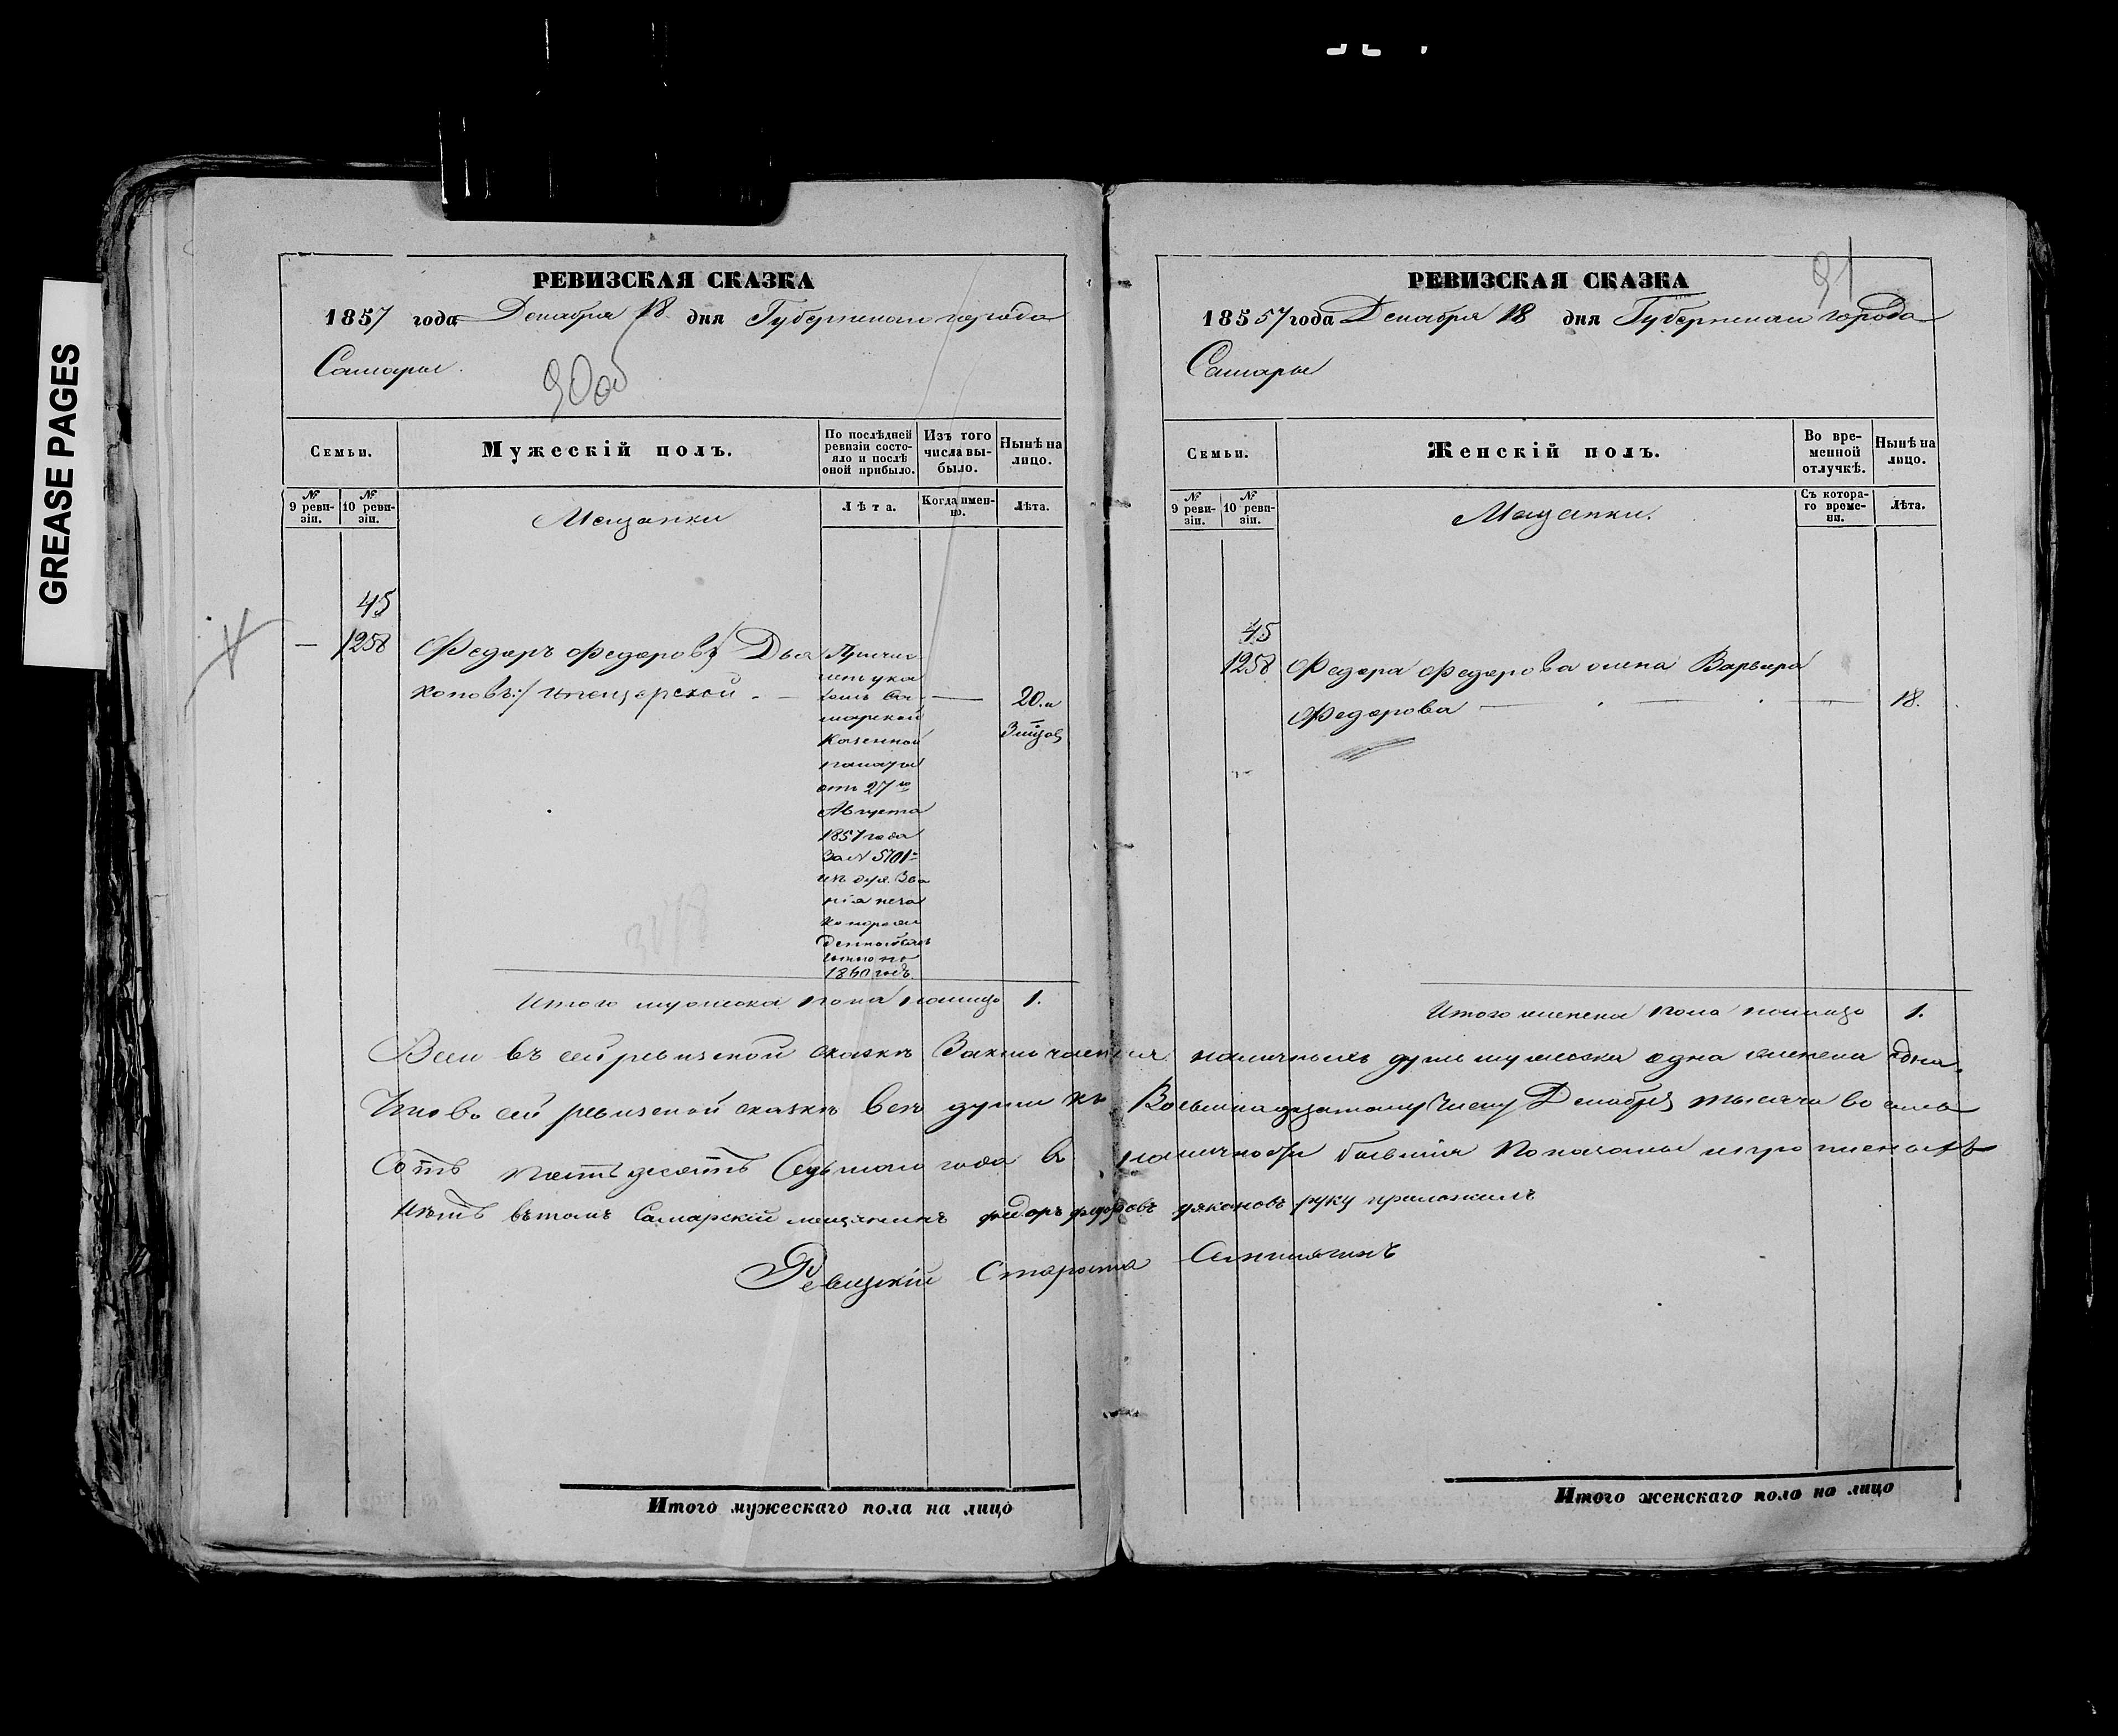 GREASE PAGES
РЕВИЗСКАЯ СКАЗКА
1857 года Декабря 18 дня Губернскаго города
Самары.
90об
Семьи.
Мужескій полъ.
По послѣдней ревизіи состояло и послѣ оной прибыло.
Изъ того числа выбыло.
Нынѣ на лицо.
№ 9 ревизіи.
№ 10 ревизіи.
Мещанки
Лѣта.
Когда именно.
Лѣта.
45
— 1258 Федоръ Федоровъ Дья
коновъ
Причис
ленъ ука
зомъ Са
марской
Казенной
палаты
отъ 27го
Августа
1857 года
за № 5701
1860 годъ
20. и
3 мѣсяц
Итого мужеска пола налицо 1.
РЕВИЗСКАЯ СКАЗКА
91
18557 года Декабря 18 дня Губернскаго города
Самары
Семьи.
Женскій полъ.
Во временной отлучкѣ.
Нынѣ на лицо.
№ 9 ревизіи.
№ 10 ревизіи.
Мещанки.
Съ котораго времени.
Лѣта.
45
1258 Федора Федорова жена Варвара
Федорова 18.
Итого женска пола налицо 1.
Всей въ сей ревизской сказкѣ Заключается наличныхъ душъ мужеска одна женска одна.
Что во сей ревизской сказкѣ всѣ души къ Восьмнадцатому Числу Декабря тысяча во семь
Сотъ пятьдесятъ Седьмаго года въ наличности бывшія показаны и прописныхъ
нѣтъ въ томъ Самарскій мещанинъ федоръ федоровъ дяконовъ руку приложилъ
Ревизскій Староста
Итого мужескаго пола на лицо
Итого женскаго пола на лицо